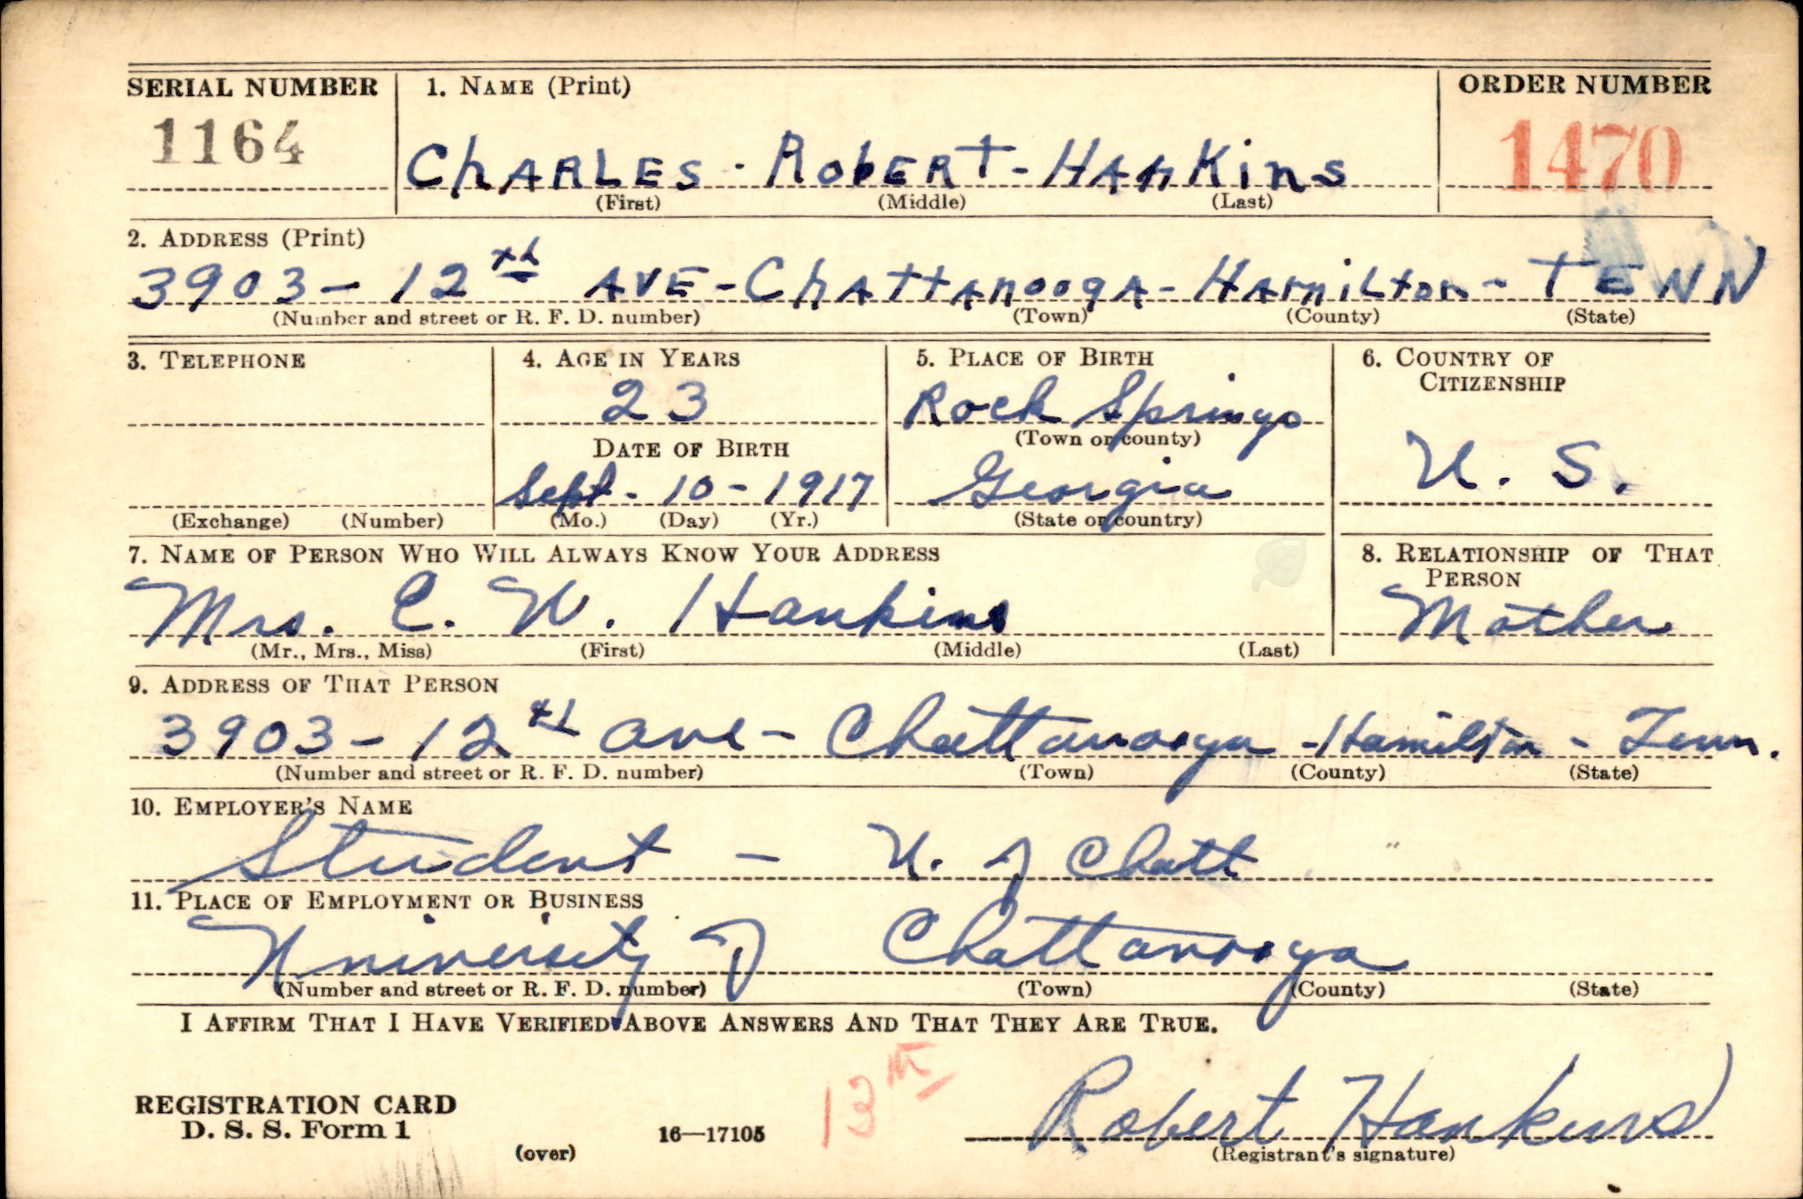 SERIAL NUMBER 1. NAME (Print) ORDER NUMBER
1164 CHARLES - ROBERT - HANKINS 1470
(First) (Middle) (Last)
2. ADDRESS (Print)
3903 - 12th AVE - CHATTANOOGA - HAMILTON - TENN
(Number and street or R. F. D. number) (Town) (County) (State)
3. TELEPHONE 4. AGE IN YEARS 5. PLACE OF BIRTH 6. COUNTRY OF CITIZENSHIP
23 Rock Springs
DATE OF BIRTH (Town or county) U. S.
Sept - 10 - 1917 Georgia
(Exchange) (Number) (Mo.) (Day) (Yr.) (State or country)
7. NAME OF PERSON WHO WILL ALWAYS KNOW YOUR ADDRESS 8. RELATIONSHIP OF THAT PERSON
Mrs. C. W. Hankins Mother
(Mr., Mrs., Miss) (First) (Middle) (Last)
9. ADDRESS OF THAT PERSON
3903 - 12th Ave - Chattanooga - Hamilton - Tenn.
(Number and street or R. F. D. number) (Town) (County) (State)
10. EMPLOYER'S NAME
Student - U. of Chatt
11. PLACE OF EMPLOYMENT OR BUSINESS
University of Chattanooga
(Number and street or R. F. D. number) (Town) (County) (State)
I AFFIRM THAT I HAVE VERIFIED ABOVE ANSWERS AND THAT THEY ARE TRUE.
REGISTRATION CARD
D. S. S. Form 1 16—17105 13th Robert Hankins
(over) (Registrant's signature)